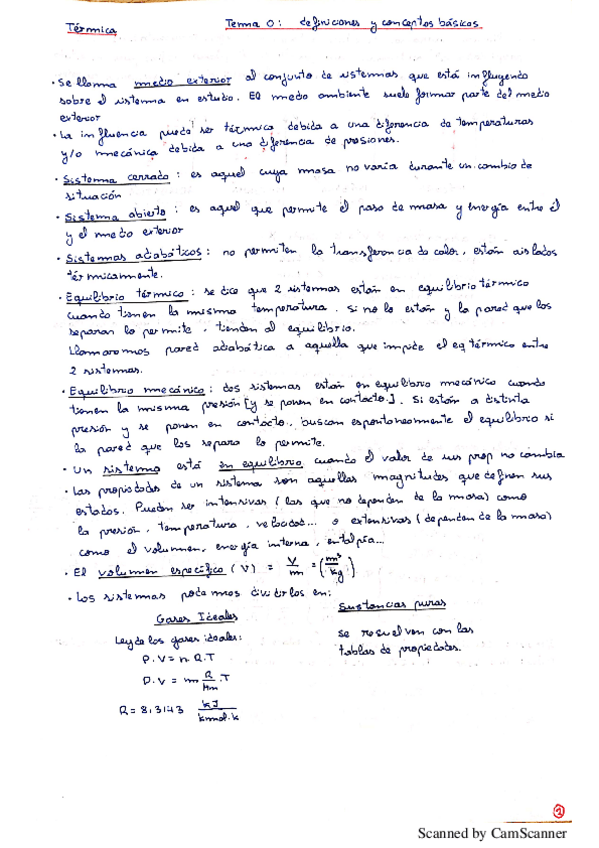 Térmica
Tema 0: definiciones y conceptos básicos
• Se llama medio exterior al conjunto de sistemas que está influyendo
sobre el sistema en estudio. El medio ambiente suele formar parte del medio
exterior
• La influencia puede ser térmica debida a una diferencia de temperaturas
y/o mecánica debida a una diferencia de presiones.
• Sistema cerrado: es aquel cuya masa no varía durante un cambio de
situación
• Sistema abierto: es aquel que permite el paso de masa y energía entre él
y el medio exterior
• Sistemas adiabáticos: no permiten la transferencia de calor, están aislados
térmicamente.
• Equilibrio térmico: se dice que 2 sistemas están en equilibrio térmico
cuando tienen la misma temperatura. Si no lo están y la pared que los
separan lo permite, tienden al equilibrio.
Llamaremos pared adiabática a aquella que impide el eq térmico entre
2 sistemas.
• Equilibrio mecánico: dos sistemas están en equilibrio mecánico cuando
tienen la misma presión [y se ponen en contacto]. Si están a distinta
presión y se ponen en contacto, buscan espontáneamente el equilibrio si
la pared que los separa lo permite.
• Un sistema está en equilibrio cuando el valor de sus prop no cambia
• Las propiedades de un sistema son aquellas magnitudes que definen sus
estados. Pueden ser intensivas (las que no dependen de la masa) como
la presión, temperatura, velocidad... o extensivas (dependen de la masa)
como el volumen, energía interna, entalpía...
• El volumen específico (v) = V/m = (m³/kg)
• Los sistemas podemos dividirlos en:
Gases Ideales
Ley de los gases ideales:
P.V = n R.T
P.V = m R/Mm .T
R = 8,3143 kJ/kmol.k
Sustancias puras
se resuelven con las
tablas de propiedades.
1
Scanned by CamScanner